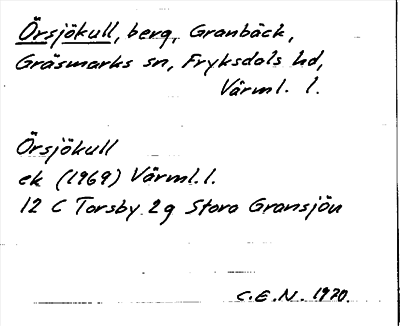 Örsjökull, berg, Granbäck,
Gräsmarks sn, Fryksdals hd,
Värml. l.
Örsjökull
ek (1969) Värml. l.
12 C Torsby 2g Stora Gransjön
C.E.N. 1970.